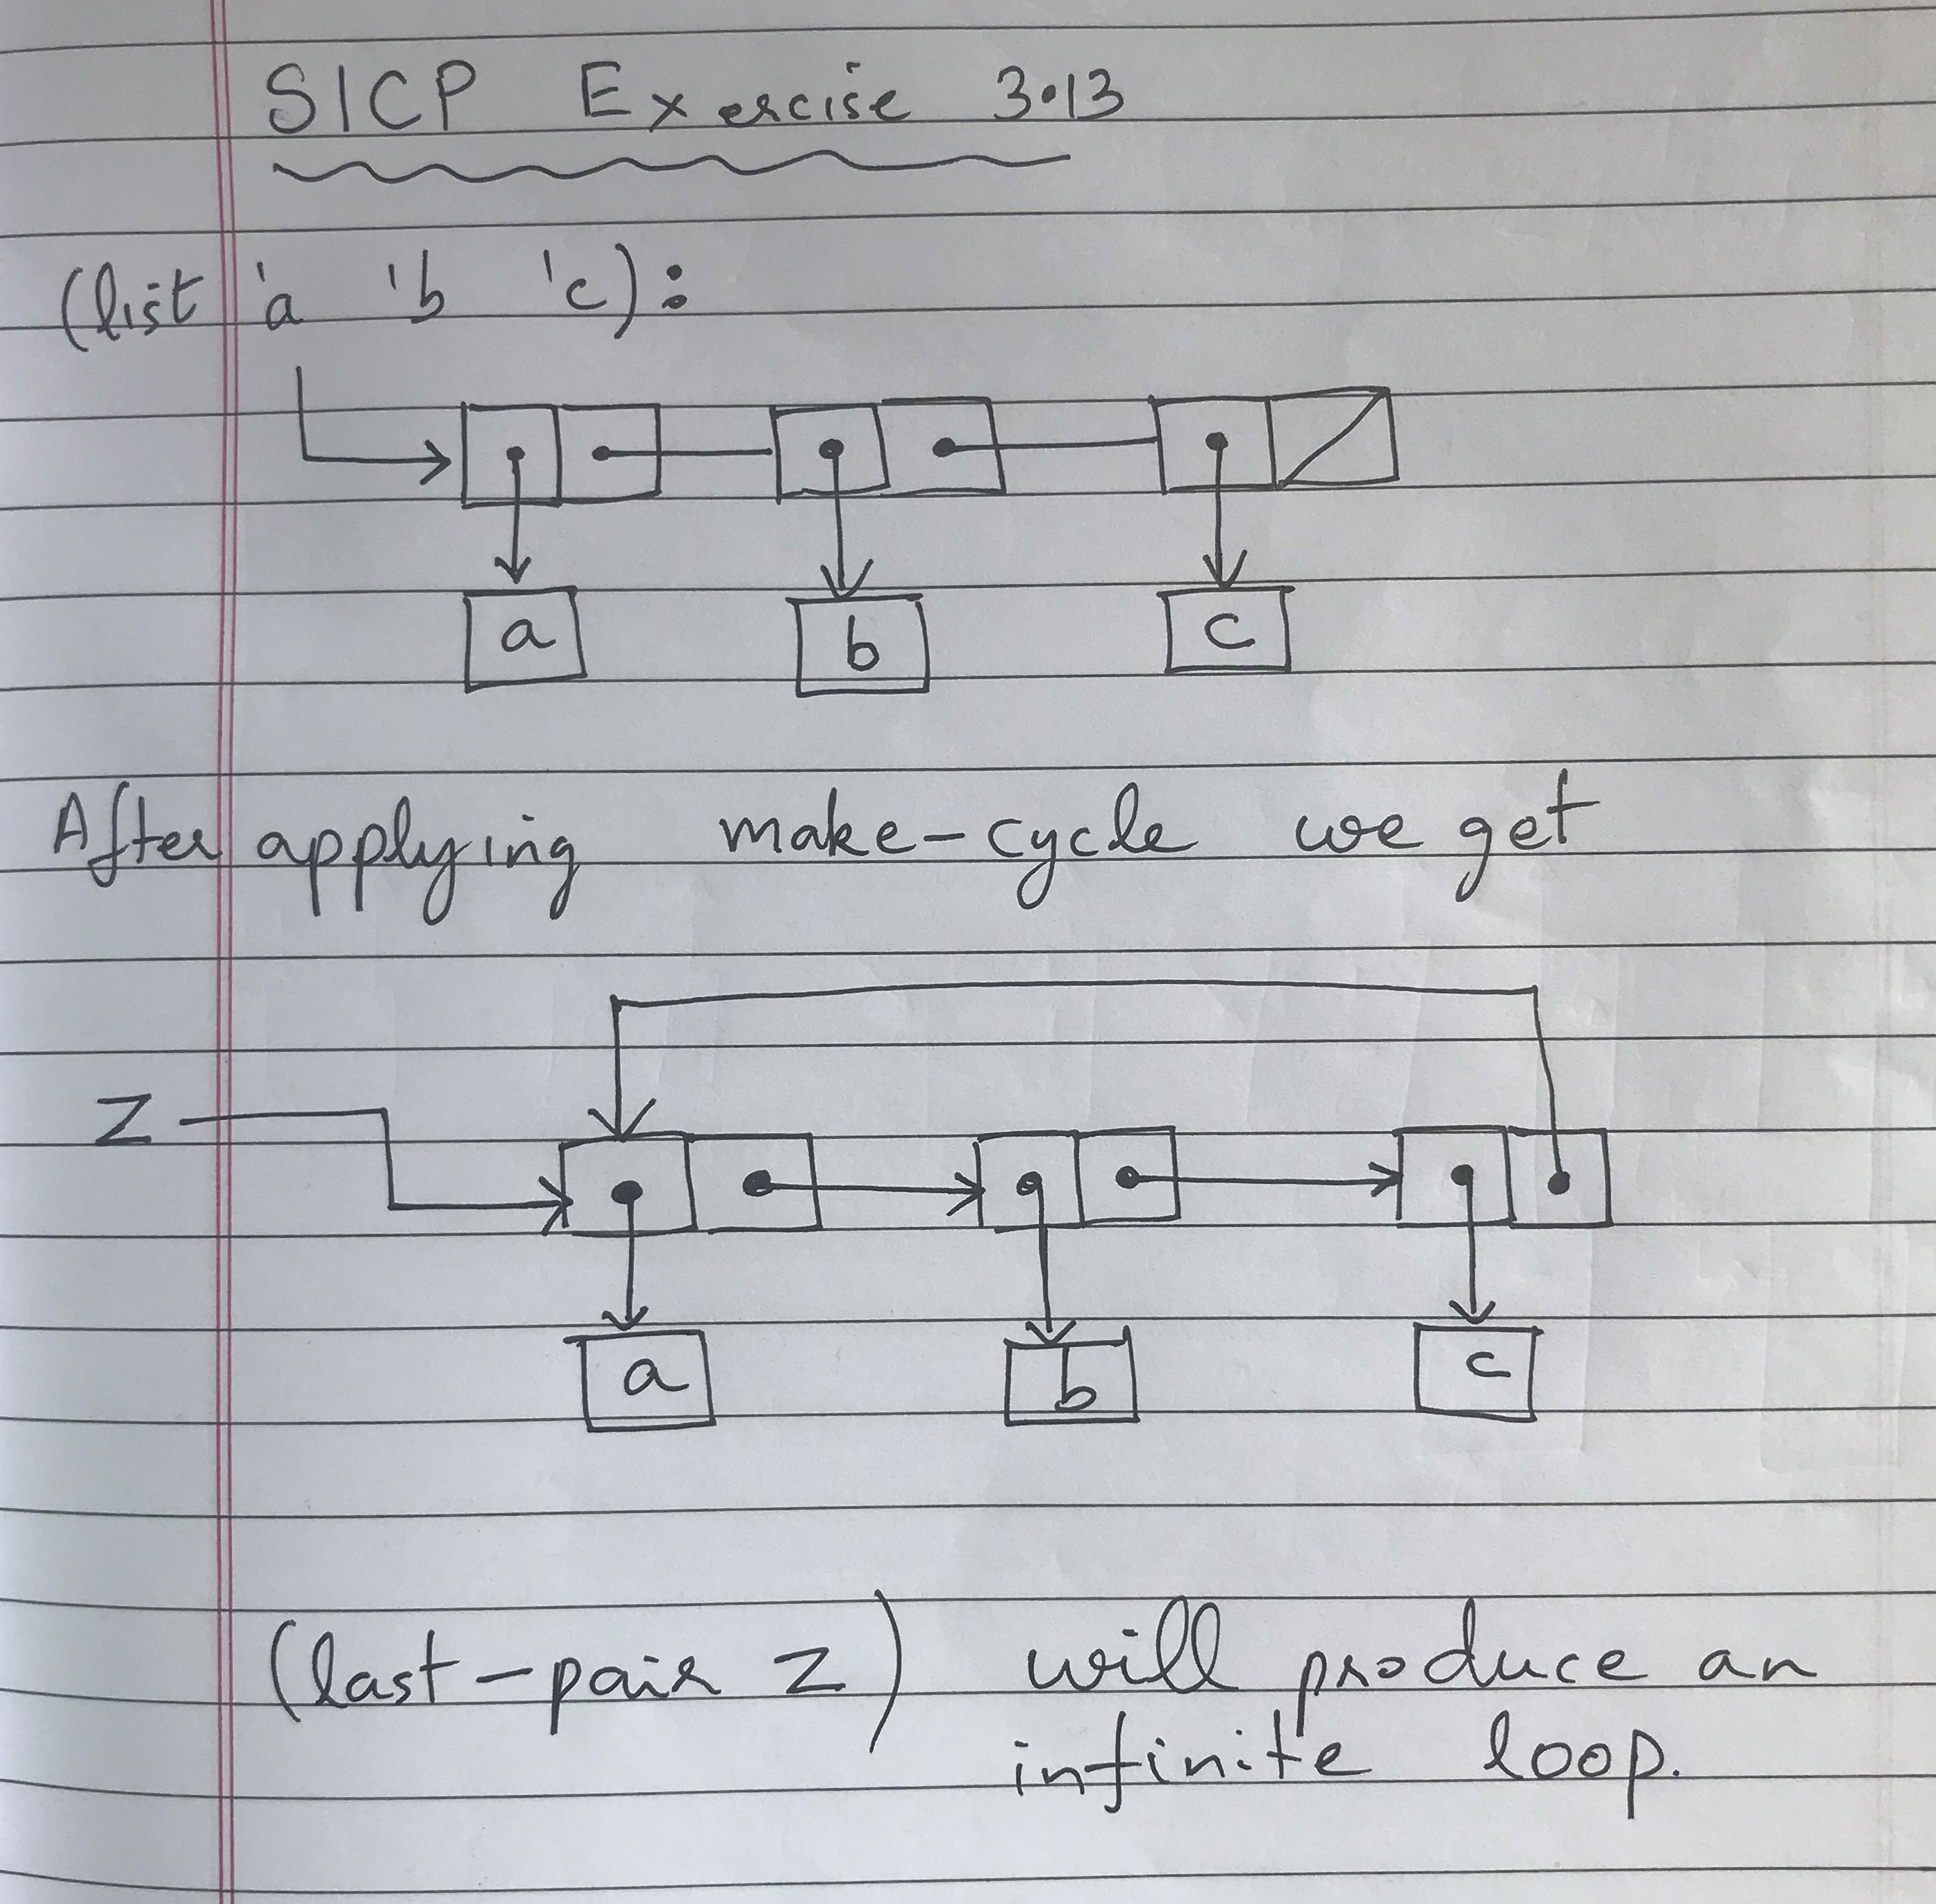 SICP Exercise 3.13
(list 'a 'b 'c):
a b c
After applying make-cycle we get
Z
a b c
(last-pair z) will produce an
infinite loop.